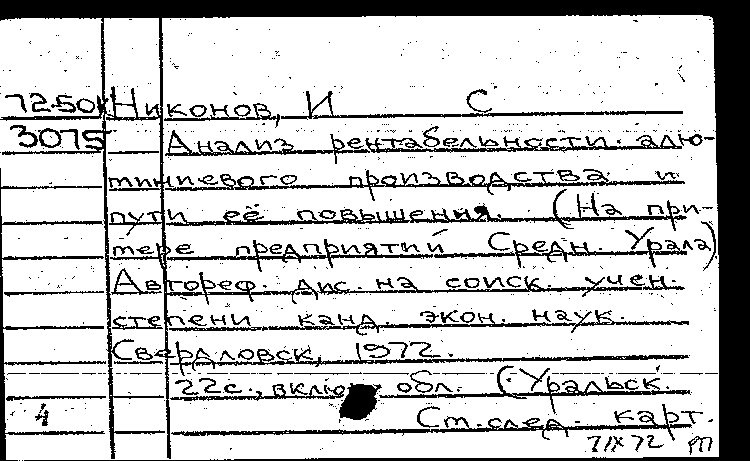 72-50к Никонов, И С
3075 Анализ рентабельности алю-
миниевого производства и
пути её повышения. (На при-
мере предприятий Средн. Урала)
Автореф. дис. на соиск. учен.
степени канд. экон. наук.
Свердловск, 1972.
22с., включ. обл. (Уральск.
4 Ст. след. карт.
7/IX 72 РП